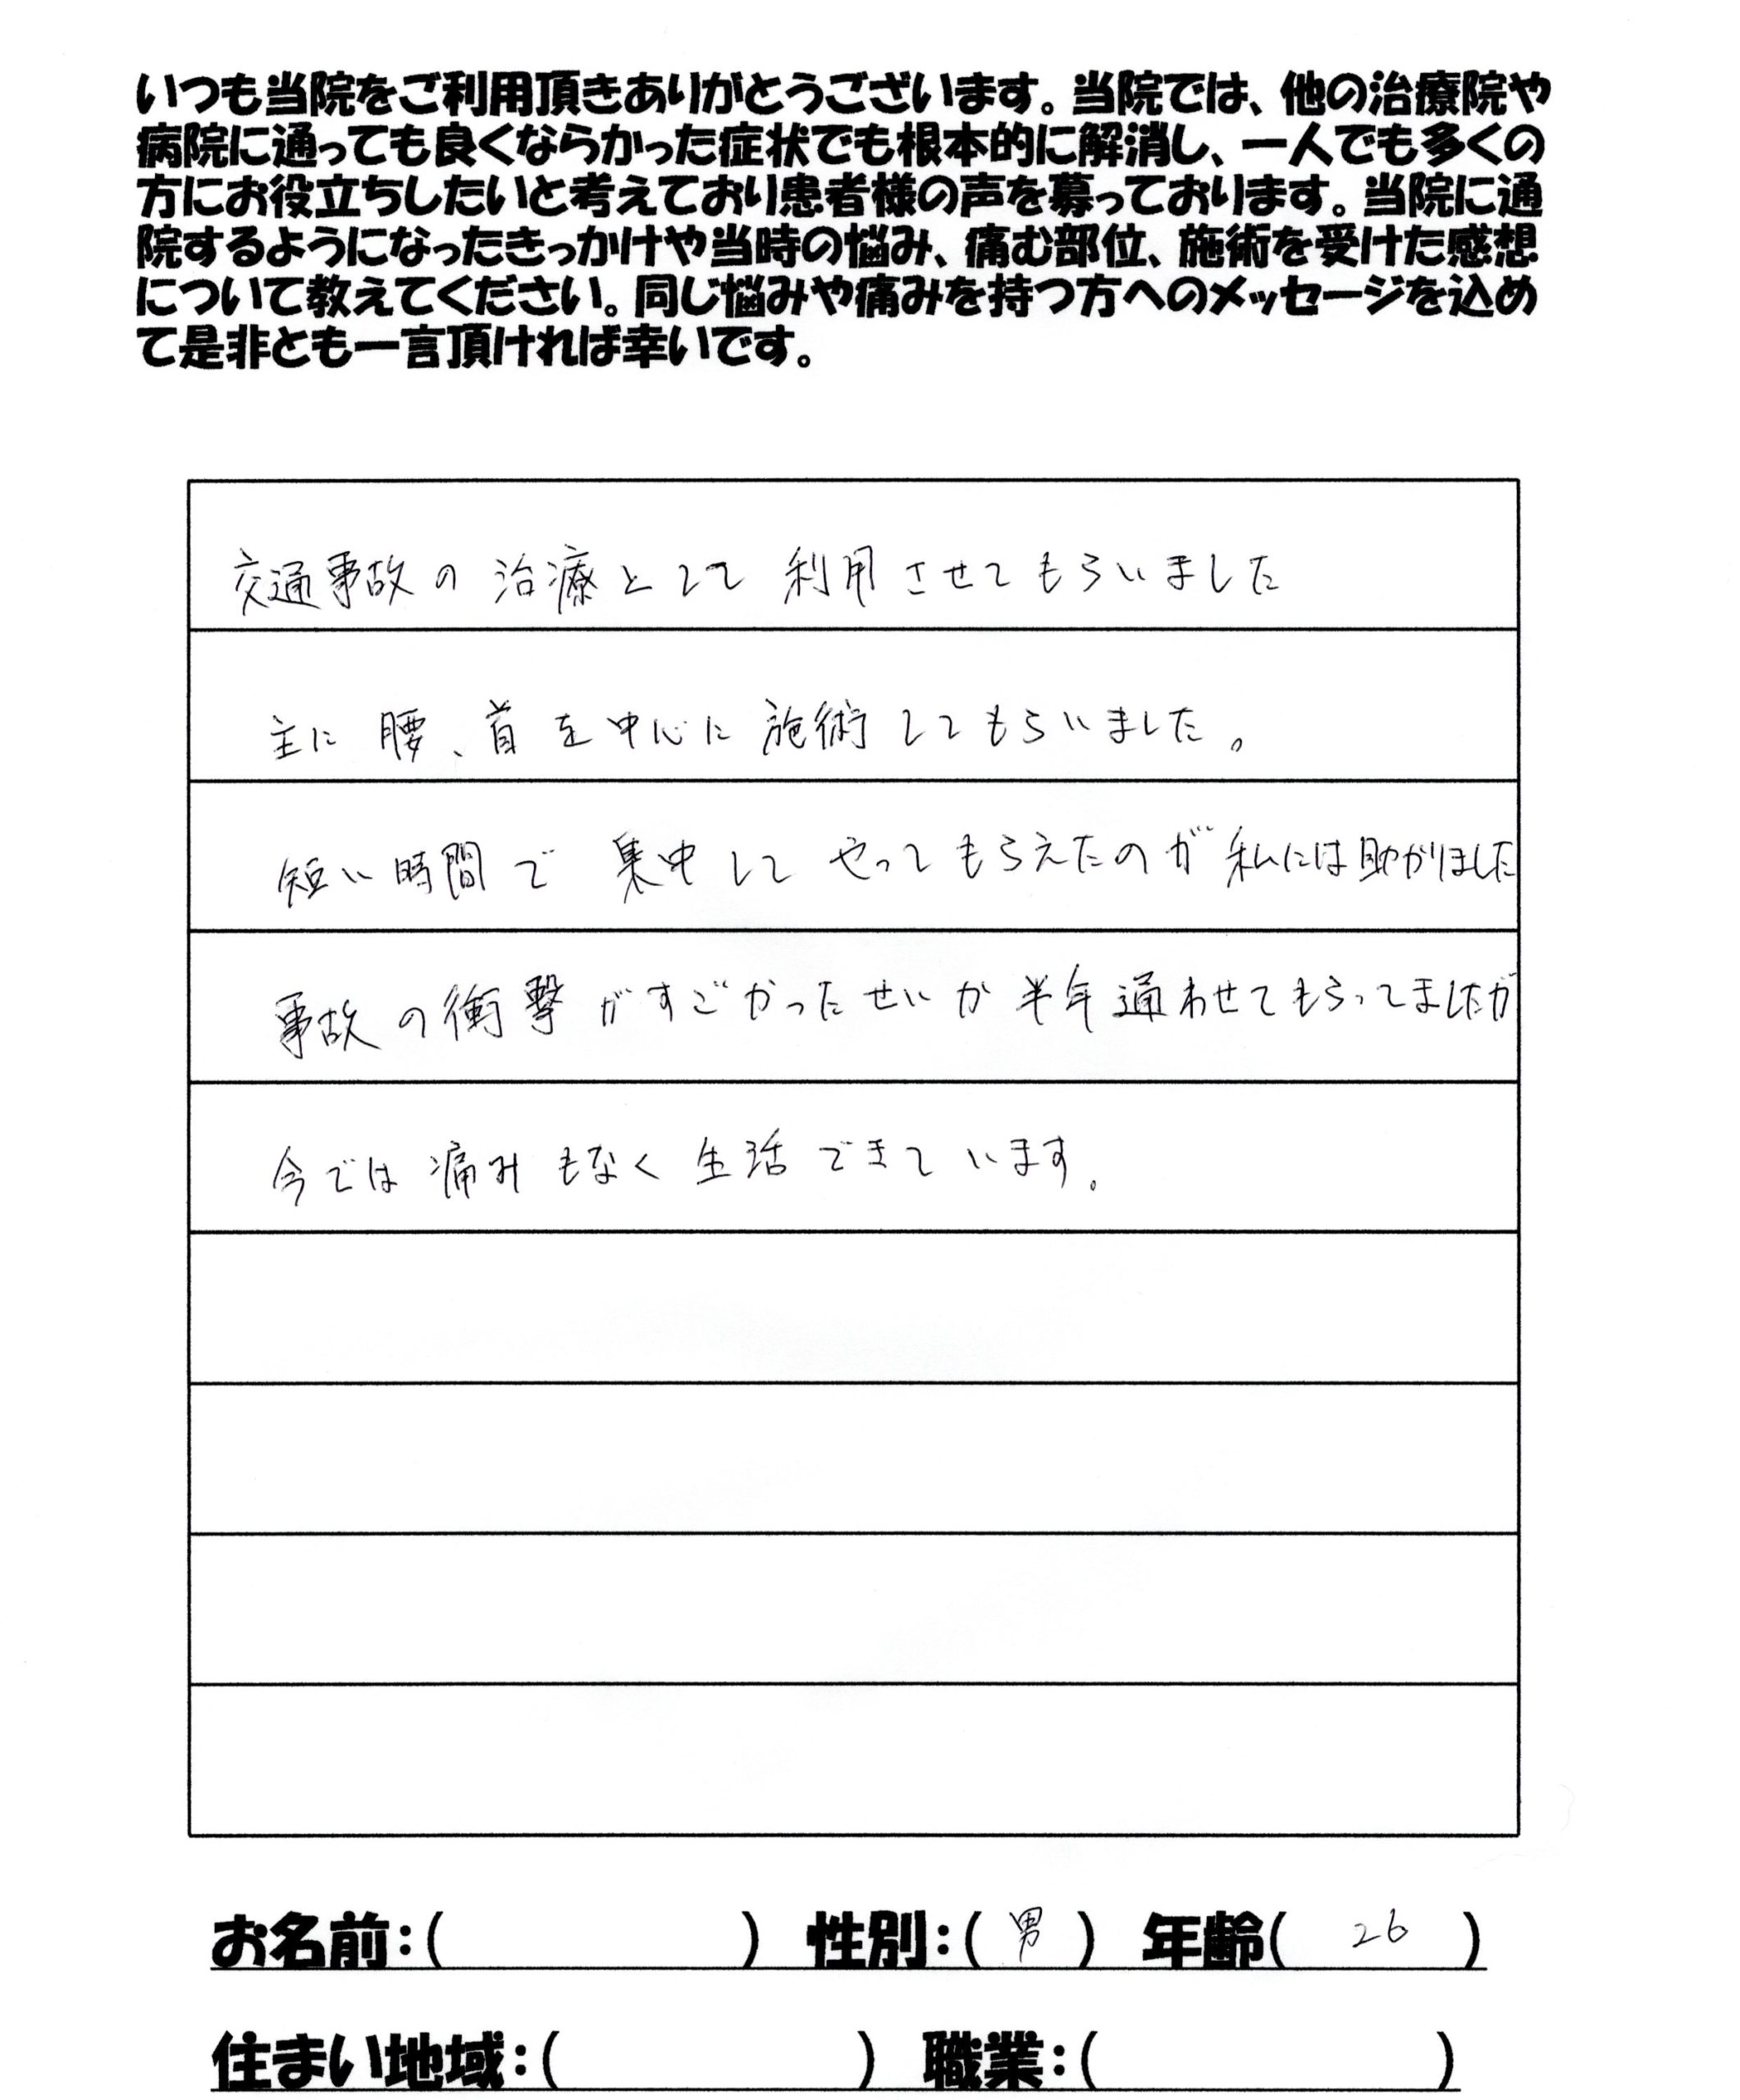 いつも当院をご利用頂きありがとうございます。当院では、他の治療院や
病院に通っても良くならかった症状でも根本的に解消し、一人でも多くの
方にお役立ちしたいと考えており患者様の声を募っております。当院に通
院するようになったきっかけや当時の悩み、痛む部位、施術を受けた感想
について教えてください。同じ悩みや痛みを持つ方へのメッセージを込め
て是非とも一言頂ければ幸いです。
交通事故の治療として利用させてもらいました
主に腰、首を中心に施術してもらいました。
短い時間で集中してやってもらえたのが私には助かりました
事故の衝撃がすごかったせいか半年通わせてもらってましたが
今では痛みもなく生活できています。
お名前：(　　　　　) 性別：( 男 ) 年齢( 26 )
住まい地域：(　　　　　) 職業：(　　　　　)